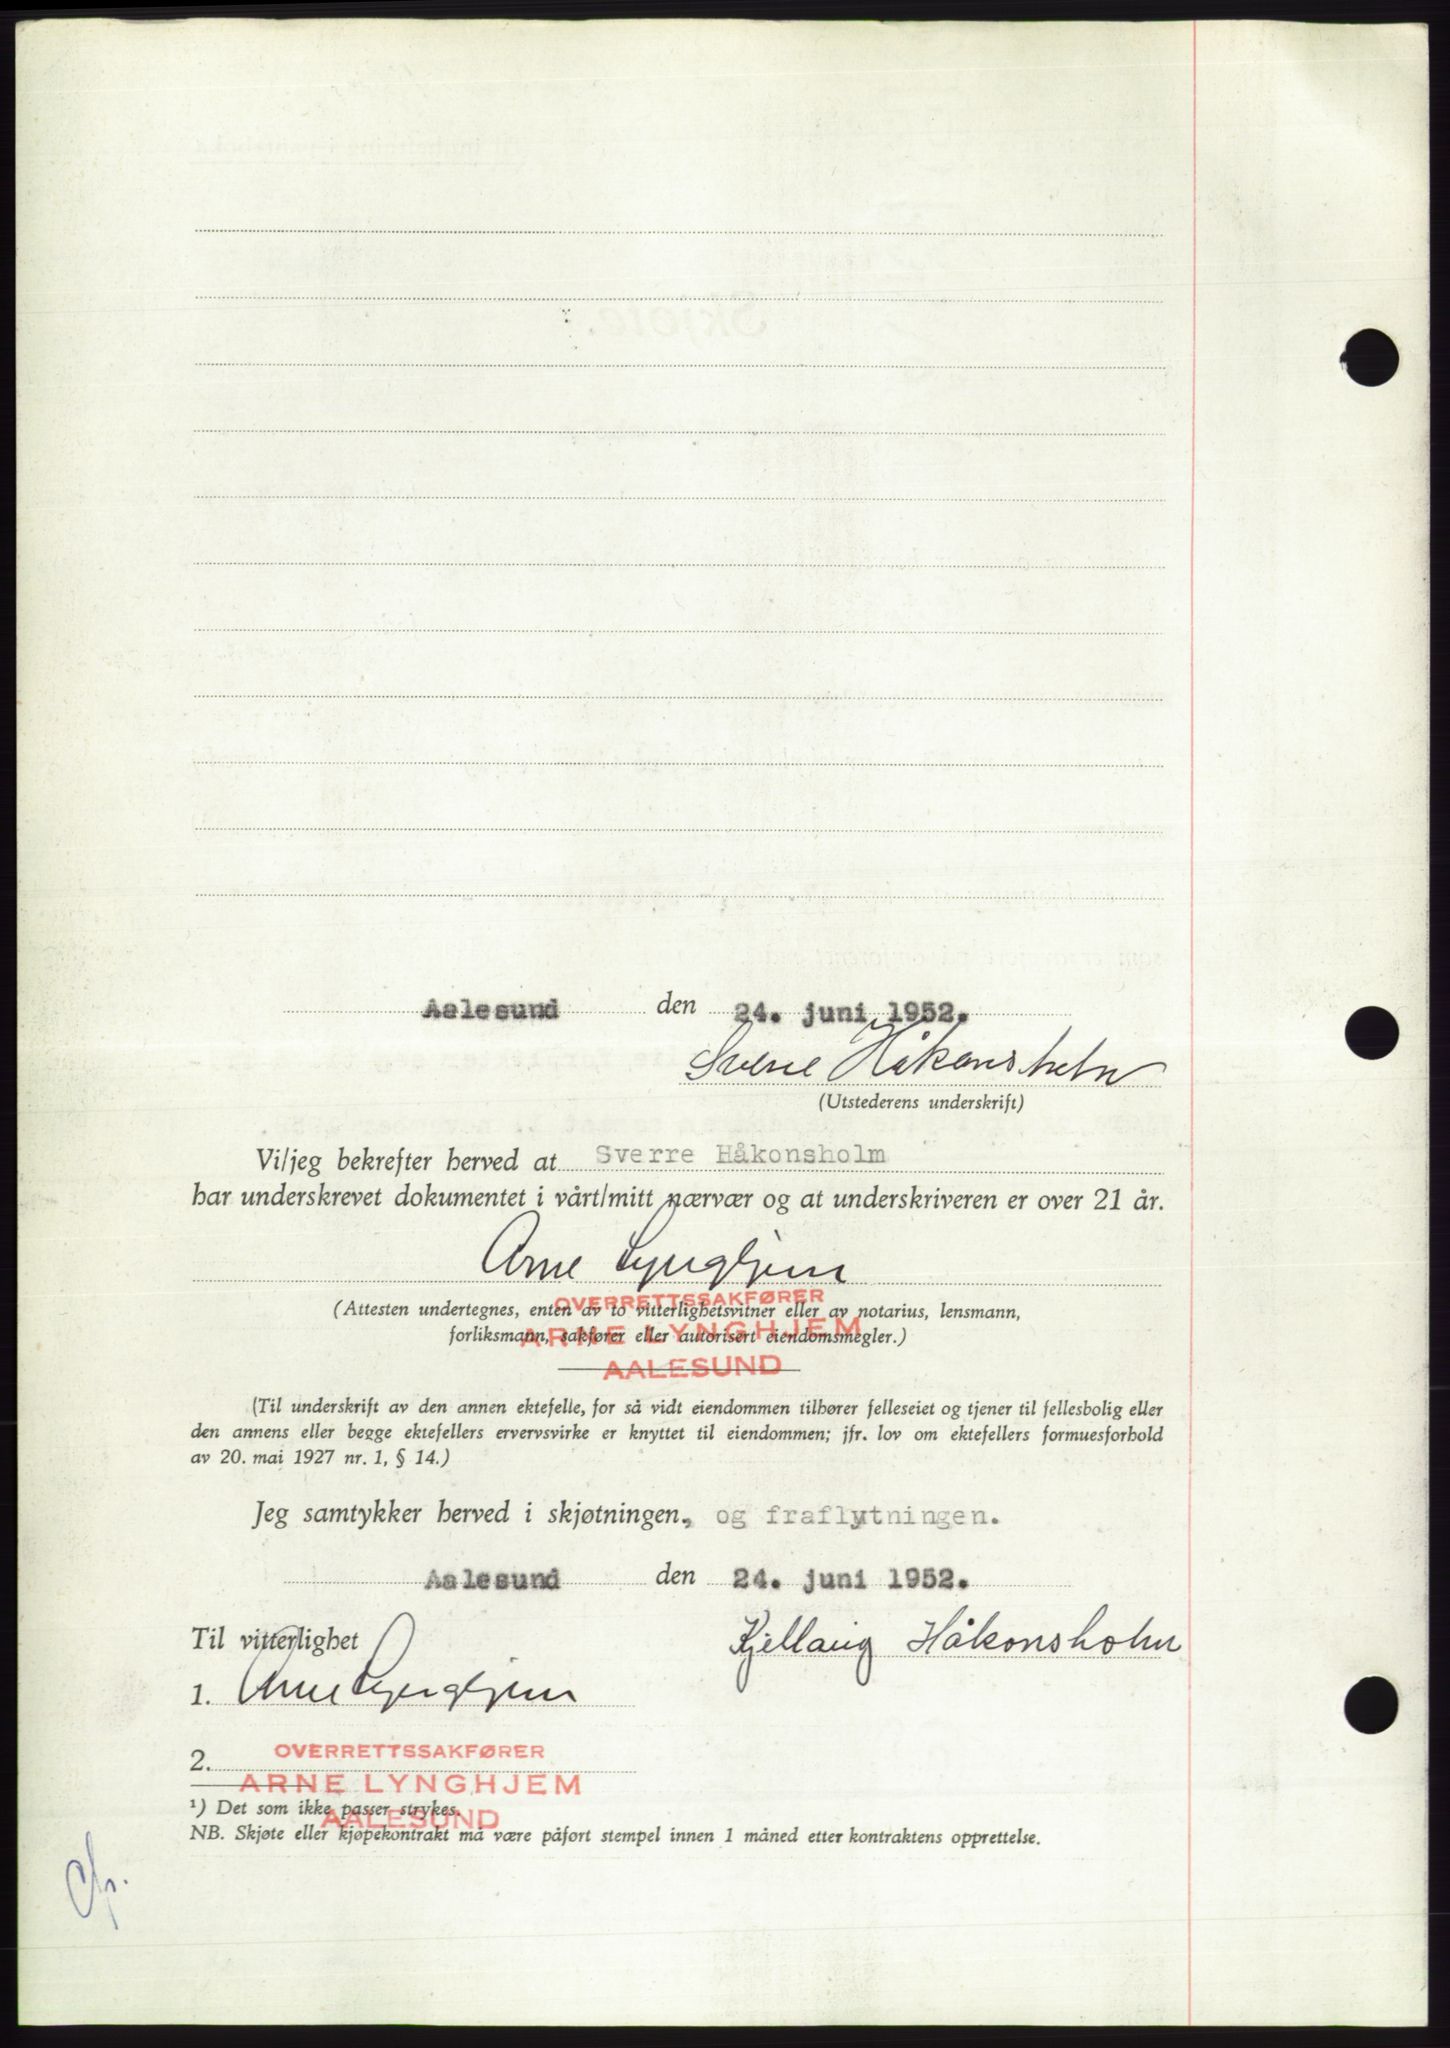 Aalesund den 24. juni 1952.
Sverre Håkonsholm
(Utstederens underskrift)
Vi/jeg bekrefter herved at Sverre Håkonsholm
har underskrevet dokumentet i vårt/mitt nærvær og at underskriveren er over 21 år.
Arne Lynghjem
OVERRETTSSAKFØRER
(Attesten undertegnes, enten av to vitterlighetsvitner eller av notarius, lensmann,
ARNE LYNGHJEM
forliksmann, sakfører eller autorisert eiendomsmegler.)
AALESUND
(Til underskrift av den annen ektefelle, for så vidt eiendommen tilhører felleseiet og tjener til fellesbolig eller
den annens eller begge ektefellers ervervsvirke er knyttet til eiendommen; jfr. lov om ektefellers formuesforhold
av 20. mai 1927 nr. 1, § 14.)
Jeg samtykker herved i skjøtningen, og fraflytningen.
Aalesund den 24. juni 1952.
Til vitterlighet
Kjellaug Håkonsholm
1. Arne Lynghjem
OVERRETTSSAKFØRER
2.
ARNE LYNGHJEM
¹) Det som ikke passer strykes.
AALESUND
NB. Skjøte eller kjøpekontrakt må være påført stempel innen 1 måned etter kontraktens opprettelse.